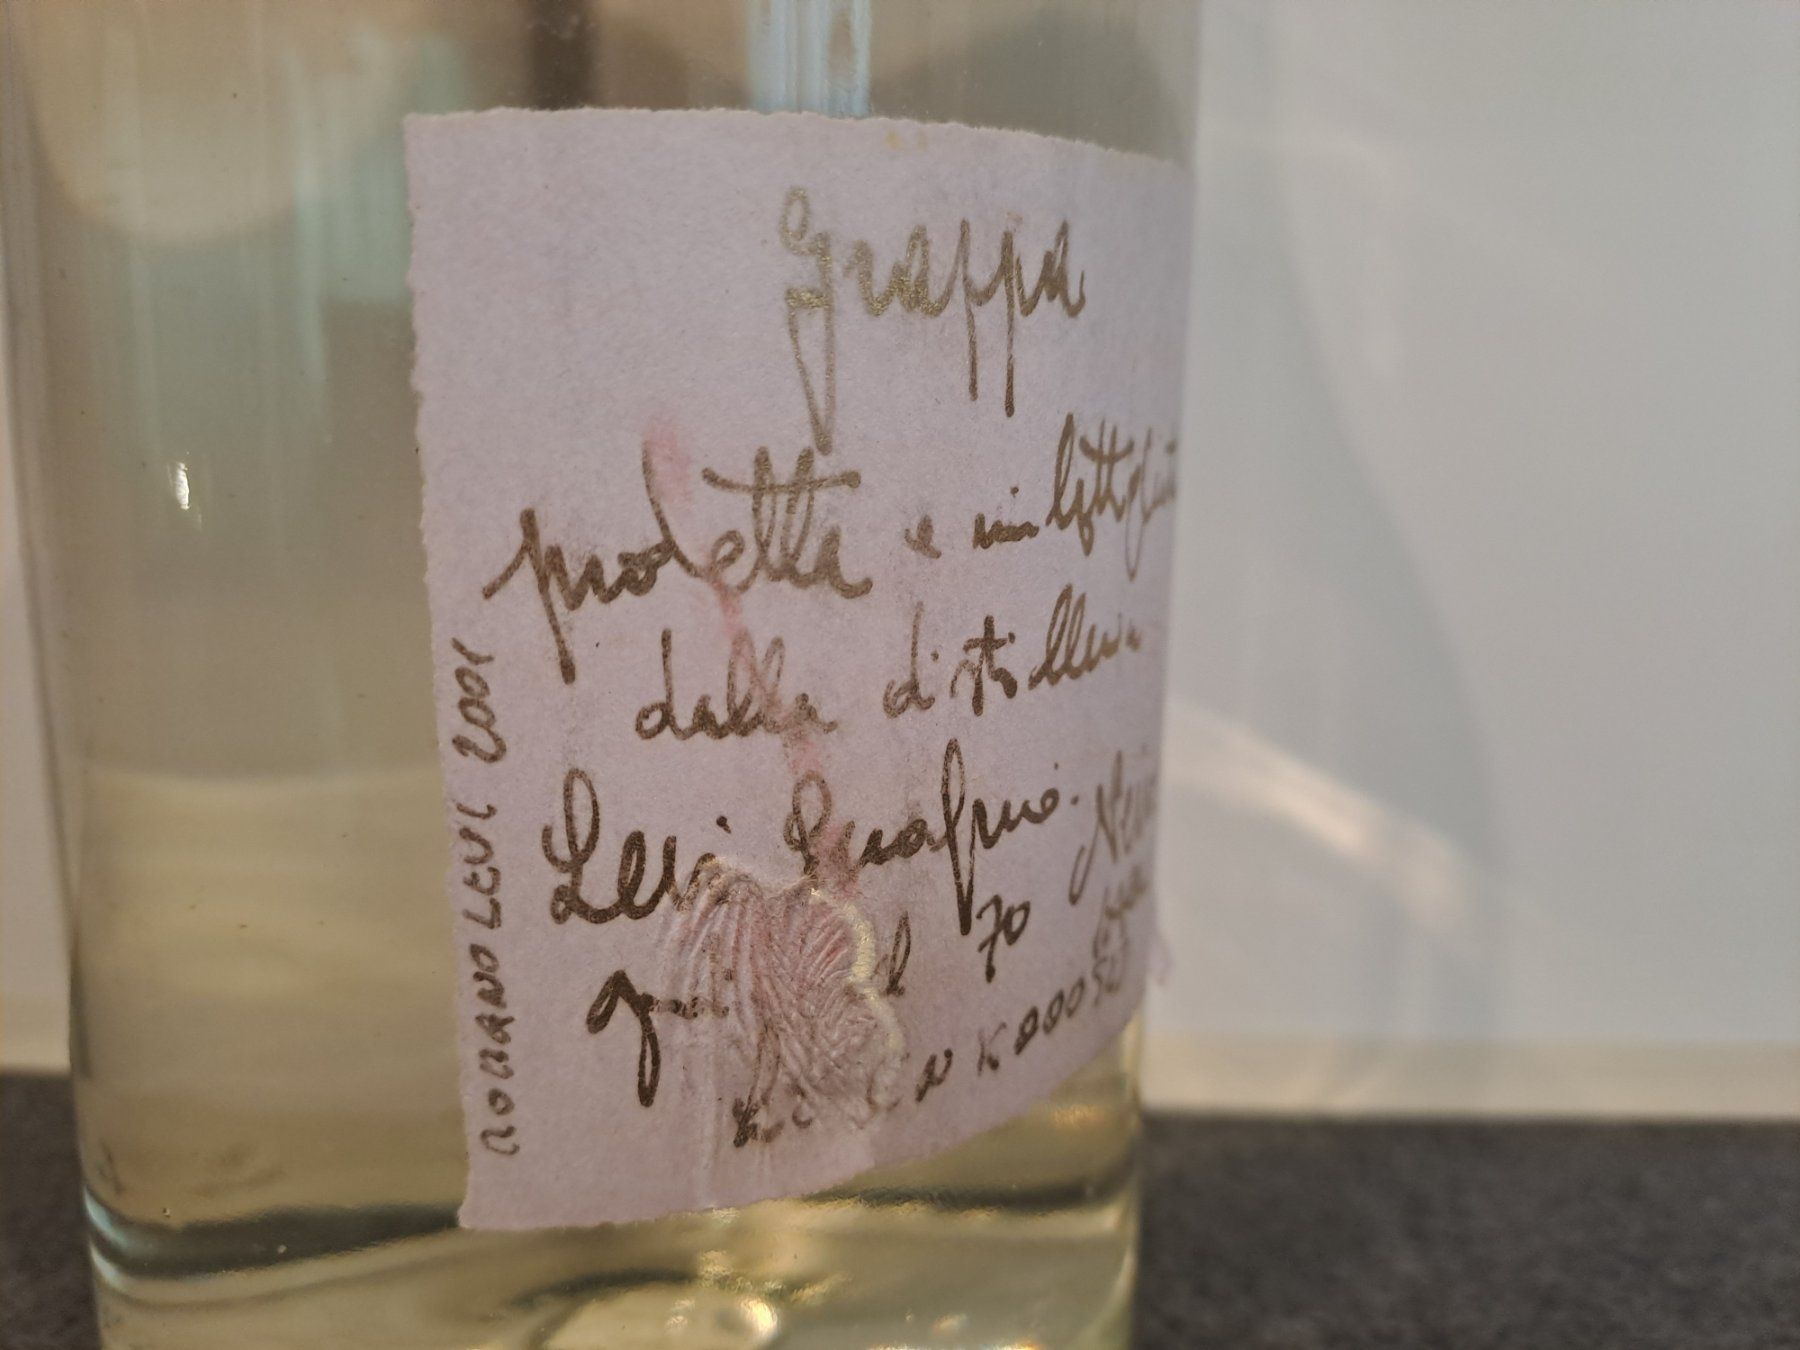 Grappa
prodotta e imbottigliata
dalla distilleria
Levi Serafino. Neive
70
K000
ROMANO LEVI 2001